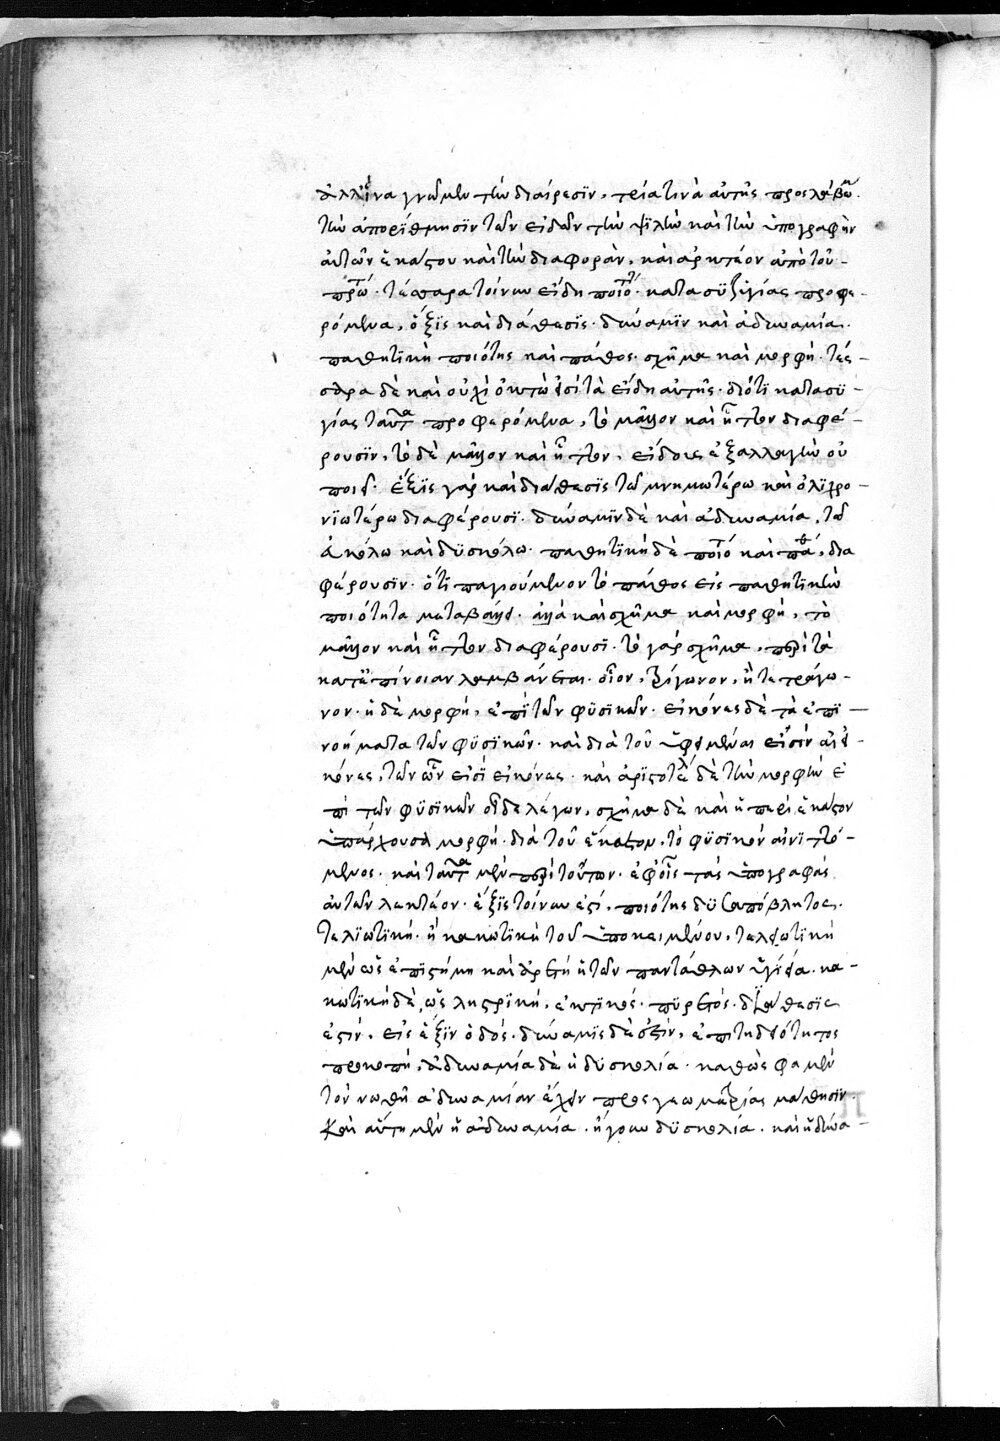 ἀλλ' ἵνα γνῶμεν τὴν διαίρεσϊν, τρία τινὰ αὐτῆς προσλάβωμεν.
τὴν ἀπορίθμησϊν τῶν εἰδῶν τὴν ψιλὴν καὶ τὴν ὑπογραφὴν
αὐτῶν ἑκάστου καὶ τὴν διαφορὰν, καὶ ἀρκτέον ἀπὸ τοῦ -
πρώτου. τέσσαρα τοίνυν εἴδη ποιότητος. κατα συζϋγίας προφε -
ρόμενα, ἕξϊς καὶ διάθεσϊς. δύναμϊν καὶ ἀδυναμία.
παθητϊκὴ ποιότης καὶ πάθος. σχῆμα καὶ μορφή. τέσ -
σαρα δὲ καὶ οὐχὶ ὀκτὼ εἰσὶ τὰ εἴδη αὐτῆς. διότϊ κατα συζϋ -
γίας ταῦτα προφερόμενα, τὸ μᾶλλον καὶ ἧττον διαφέ -
ρουσϊν, τὸ δὲ μᾶλλον καὶ ἧττον, εἴδους ἐξαλλαγὴν οὐ
ποιεῖ. ἕξϊς γὰρ καὶ διάθεσϊς τῶ μονιμωτέρω καὶ ὀλϊγχρο -
νϊωτέρω διαφέρουσϊ. δύναμϊν δὲ καὶ ἀδυναμία, τῶ
εὐκόλω καὶ δϋσκόλω. παθητϊκὴ δὲ ποιότης καὶ πάθος, δια
φέρουσϊν. ὅτϊ παγιούμενον τὸ πάθος εἰς παθητϊκὴν
ποιότητα μεταβάλλει. ἀλλὰ καὶ σχῆμα καὶ μορφή, τὸ
μᾶλλον καὶ ἧττον διαφέρουσϊ. τὸ γὰρ σχῆμα, περὶ τὰ
κατ' ἐπίνοιαν λαμβάνεται. οἷον, τρίγωνον, ἢ τετράγω -
νον. ἡ δὲ μορφή, ἐπὶ τῶν φϋσϊκῶν. εἰκόνας δὲ τὰ ἐπϊ -
νοήματα τῶν φϋσϊκῶν. καὶ διὰ τοῦ
κόνας, τῶν ὧν εἰσϊ εἰκόνας. καὶ ἀρϊστοτέλης δὲ τὴν μορφὴν ἐ
πὶ τῶν φϋσϊκῶν οἶδε λέγων, σχῆμα δὲ καὶ ἡ περὶ ἕκαστον
ὑπάρχουσα μορφή. διὰ τοῦ ἕκαστον, τὸ φϋσϊκὸν αἰνϊττό -
μενος. καὶ ταῦτα μὲν περὶ τούτων. ἐφ' οἷς τὰς ὑπογραφὰς
αὐτῶν λεκτέον. ἕξϊς τοίνυν ἐστί, ποιότης δϋσαπόβλητος.
τελϊωτϊκή. ἢ κακωτϊκὴ τοῦ ὑποκειμένου, τελειωτϊκὴ
μὲν ὡς ἐπϊστήμη καὶ ἀρετὴ ἢ τῶν παντάθλων ὑγίεια. κα -
κωτϊκὴ δὲ, ὡς ληστρϊκή, ἑκτϊκός. πϋρετός. διάθεσϊς
ἐστϊν, εἰς ἕξϊν ὁδός. δύναμϊς δὲ ἐστϊν, ἐπιτηδειότητος
προκοπή, ἀδυναμία δὲ ἡ δϋσκολία. καθὼς φαμὲν
τὸν νωθῆ ἀδυναμίαν ἔχειν πρὸς γεωμετρίας μάθησϊν.
καὶ αὕτη μὲν ἡ ἀδυναμία. ἤγουν δϋσκολία. καὶ ἡ δύνα -